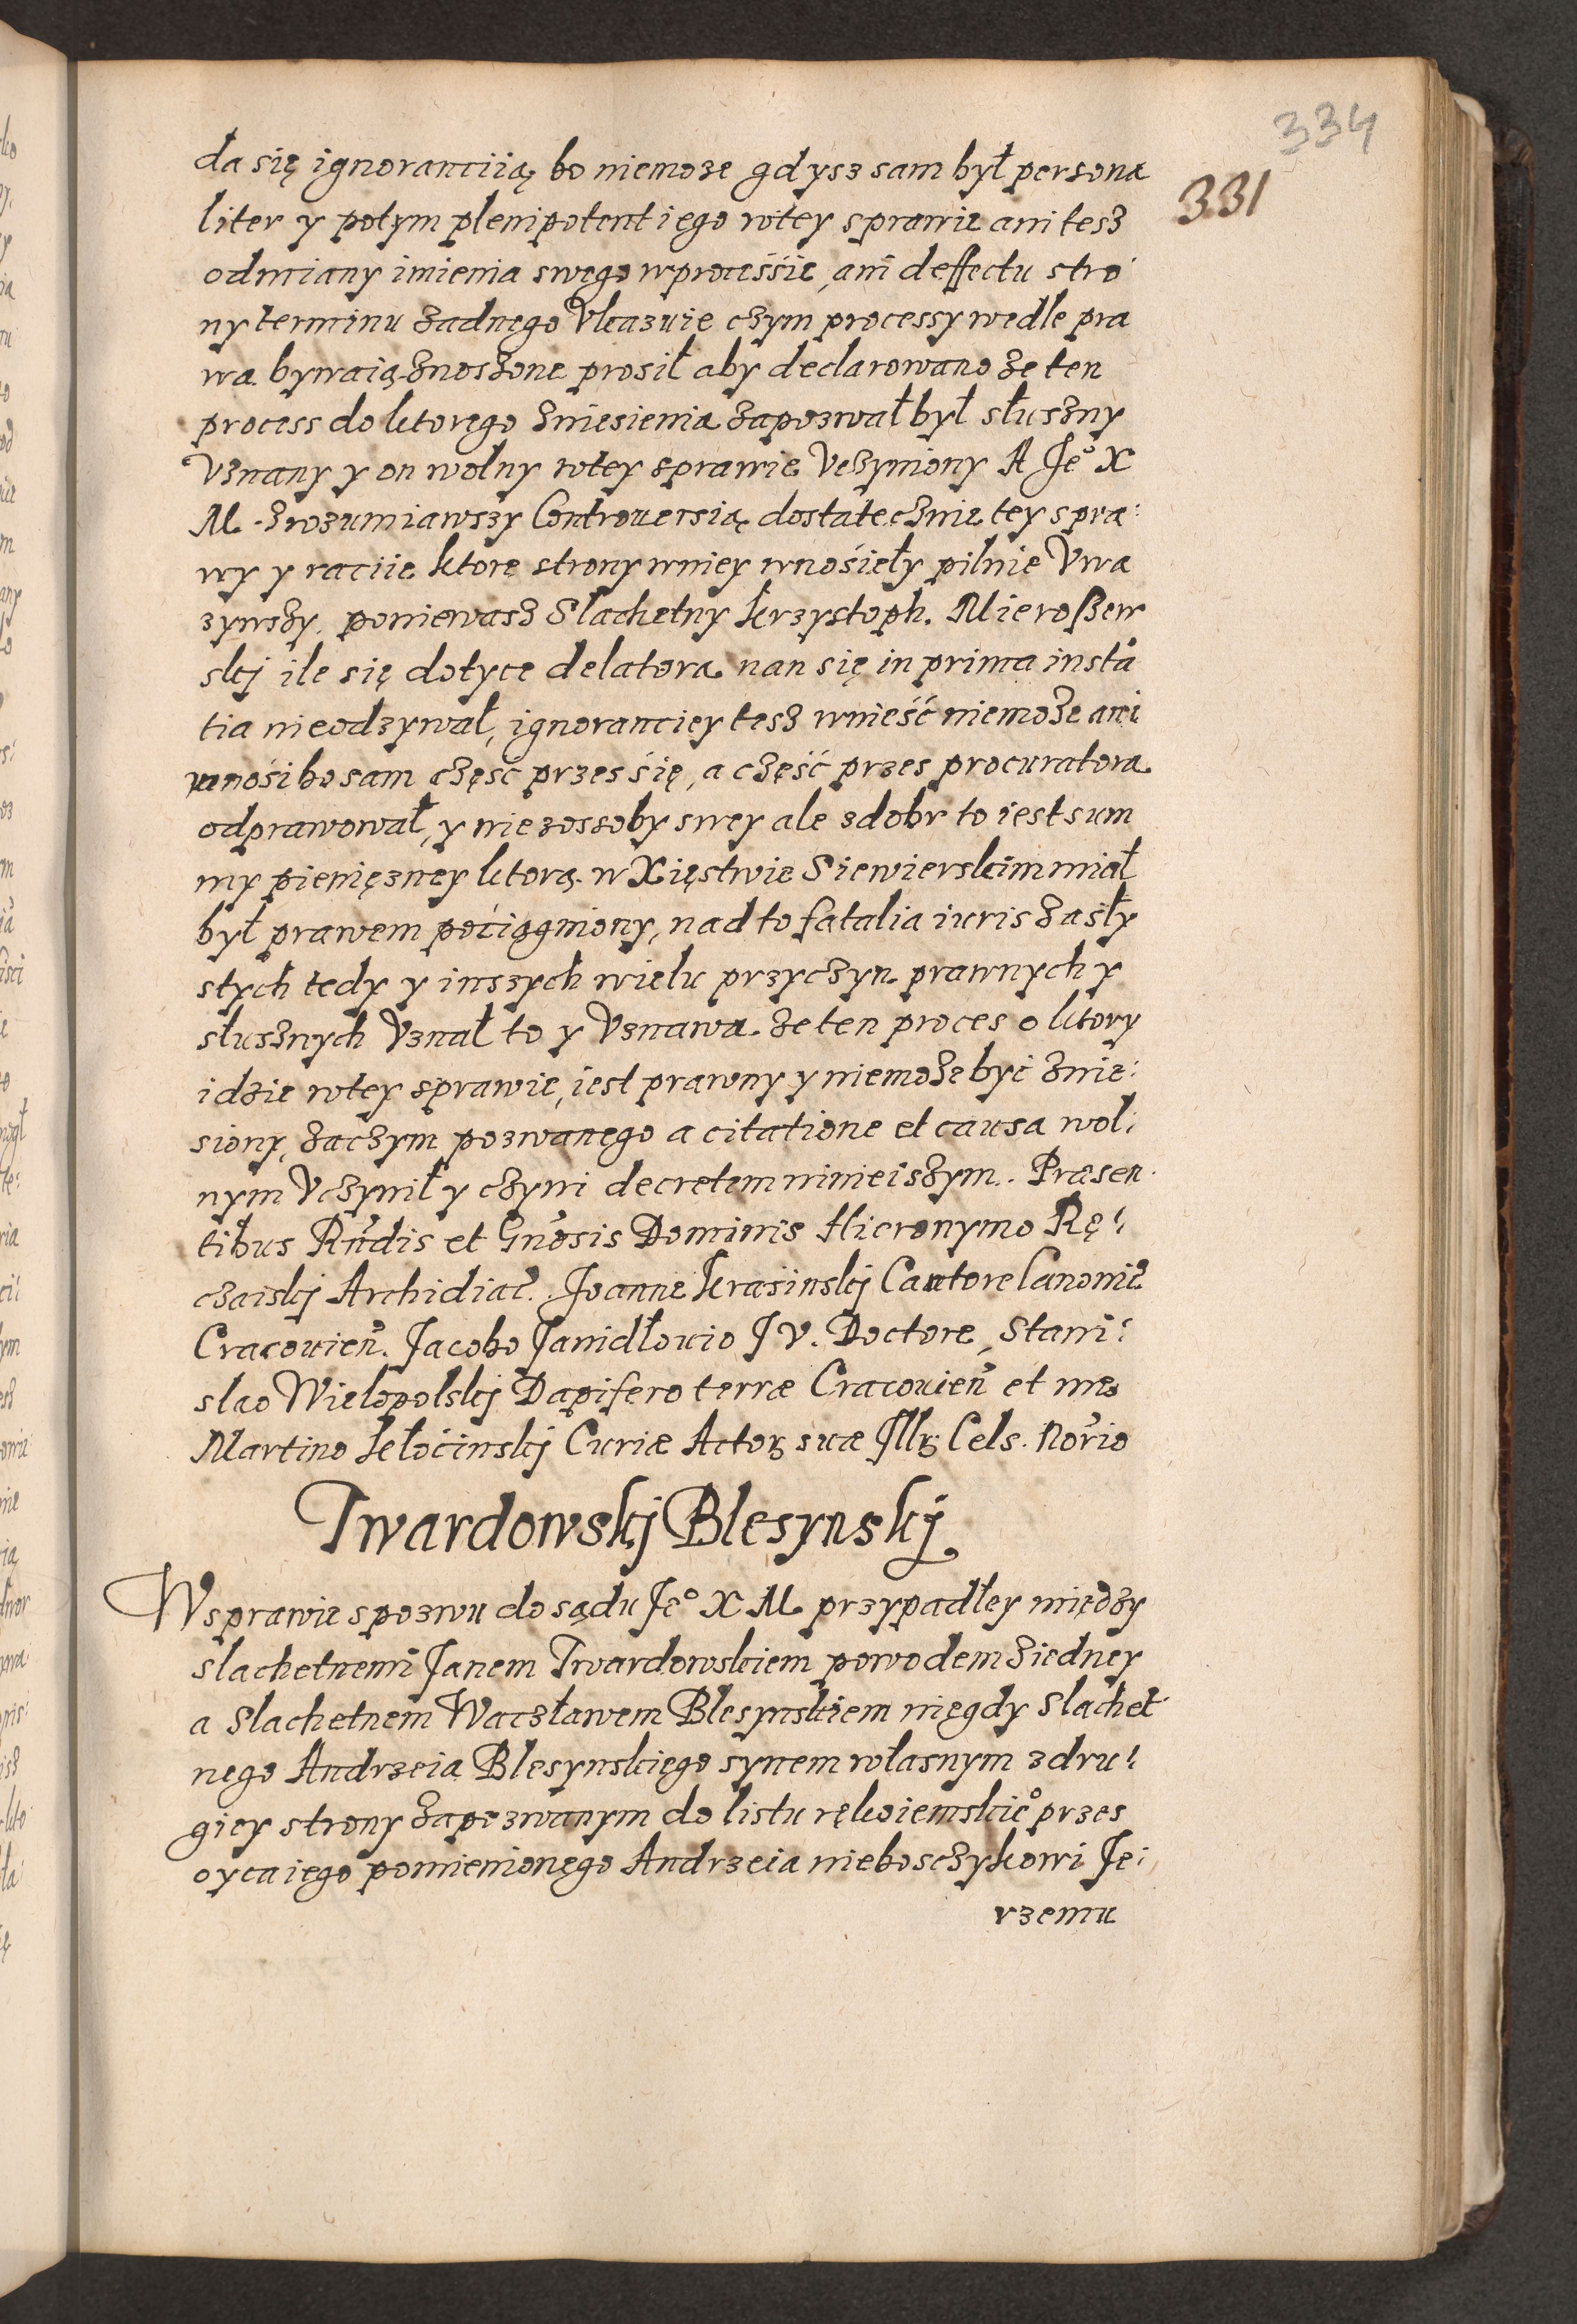 334
331
da się ignoranciią bo niemoze gdysz sam był persona
liter y potym plenipotent iego wtey sprawie ani tesz
odmiany imienia swego wprocessie, ani deffectu stro
ny terminu zadnego Vkazuie czym processy wedle pra
wa bywaią znoszone prosił aby declarowano ze ten
process do ktorego zniesienia zapozwał był słuszny
Vznany y on wolny wtey sprawie Vczyniony A Je° X
M. zrozumiawszy Controuersią dostatecznie tey spra:
wy y raciie ktore strony wniey wnosieły pilnie Vwa
zywszy. poniewasz Slachetny Krzystoph. Mieroszew
skj ile się dotyce delatora nan się in prima insta
tia nieodzywał, ignoranciey tesz wnieść niemoze ani
wnośi bo sam część przes się, a część przes procuratora
odprawował, y nie zossoby swey ale zdobr to iest sum
my pienięzney ktorą w Xięstwie Siewierskim miał
był prawem pociągniony, nad to fatalia iuris zasły
stych tedy y inszych wielu przyczyn prawnych y
słusznych Vznał to y Vznawa ze ten proces o ktory
idzie wtey sprawie, iest prawny y niemoze być znie:
siony, zaczym pozwanego a citatione et causa wol:
nym Vczynił y czyni decretem ninieiszym. Præsen
tibus Rndis et Gnosis Dominis Hieronymo Rę:
czaiskj Archidiac. Joanne Krasinskj Cantore Canonic
Cracouien. Jacobo Janidłouio J V. Doctore, Stani:
slao Wielopolskj Dapifero terræ Cracouien et me
Martino Kełoćinskj Curiæ Actor suæ Jllr Cels. Norio
Twardowskj Blesynskj
W sprawie spozwu do sądu Je° X M przypadłey między
slachetnemi Janem Twardowskiem powodem ziedney
a Slachetnem Waczławem Blesynskiem niegdy Slachet
nego Andrzeia Blesynskiego synem własnym zdru:
giey strony zapozwanym do listu rękoiemskie° przes
oyca iego pomienionego Andrzeia nieboszczykowi Je:
rzemu